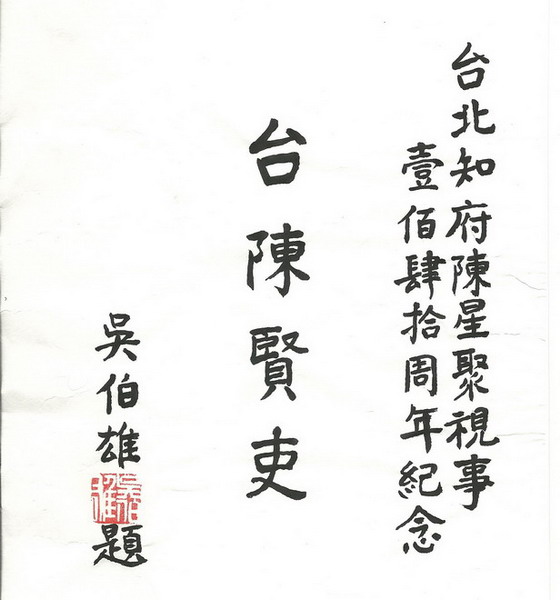 台北知府陳星聚視事
壹佰肆拾周年紀念
台陳賢吏
吳伯雄題